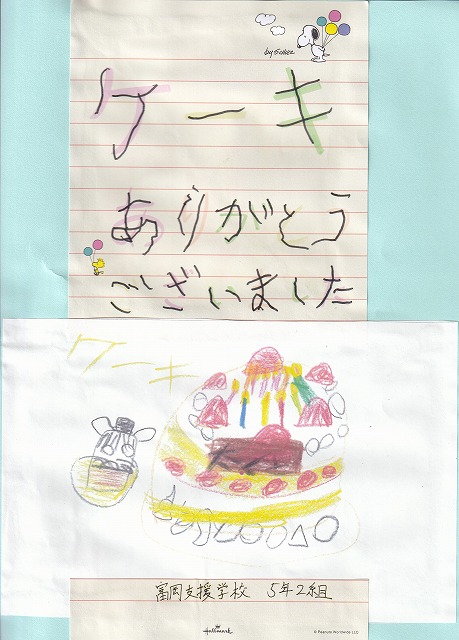 by SCHULZ
ケーキ
ありがとう
ございました
ケーキ
富岡支援学校 5年2組
Hallmark
© Peanuts Worldwide LLC